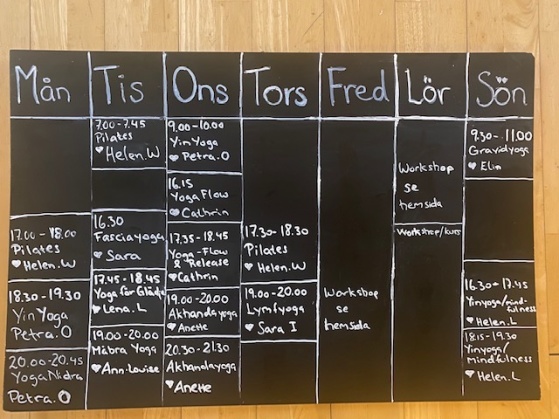 Mån
Tis
Ons
Tors
Fred
Lör
Sön
17.00-18.00
Pilates
Helen.W
18.30-19.30
Yin Yoga
Petra.O
20.00-20.45
Yoga Nidra
Petra.O
7.00-7.45
Pilates
Helen.W
16.30
Fasciayoga
Sara
17.45-18.45
Yoga för Glädje
Lena.L
19.00-20.00
Må bra Yoga
Ann-Louise
9.00-10.00
Yin Yoga
Petra.O
16.15
Yoga Flow
Cathrin
17.35-18.45
Yoga-Flow
& Release
Cathrin
19.00-20.00
Akhandayoga
Anette
20.30-21.30
Akhandayoga
Anette
17.30-18.30
Pilates
Helen.W
19.00-20.00
Lymfyoga
Sara I
Workshop
se
hemsida
Workshop
se
hemsida
Workshop/kurs
9.30-11.00
Gravidyoga
Elin
16.30-17.45
Yinyoga/mind-
fulness
Helen.L
18.15-19.30
Yinyoga/
Mindfulness
Helen.L